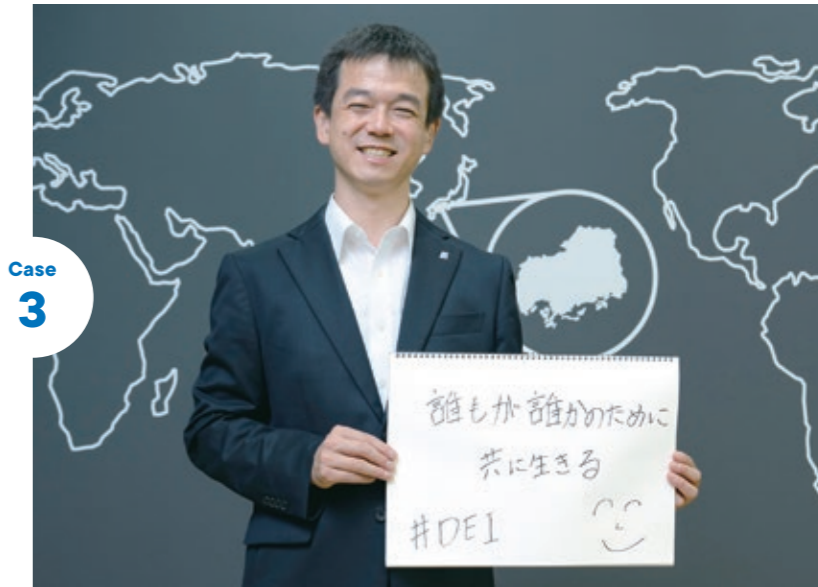 Case
3
誰もが誰かのために
共に生きる
#DEI